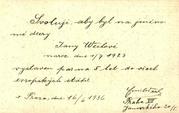 Svoluji, aby byl na jméno
mé dcery
Jany Weilové
naroz. dne 1/7 1923
vystaven pas na 5 let do všech
evropských států.
v Praze, dne 16/6 1936
Praha XII